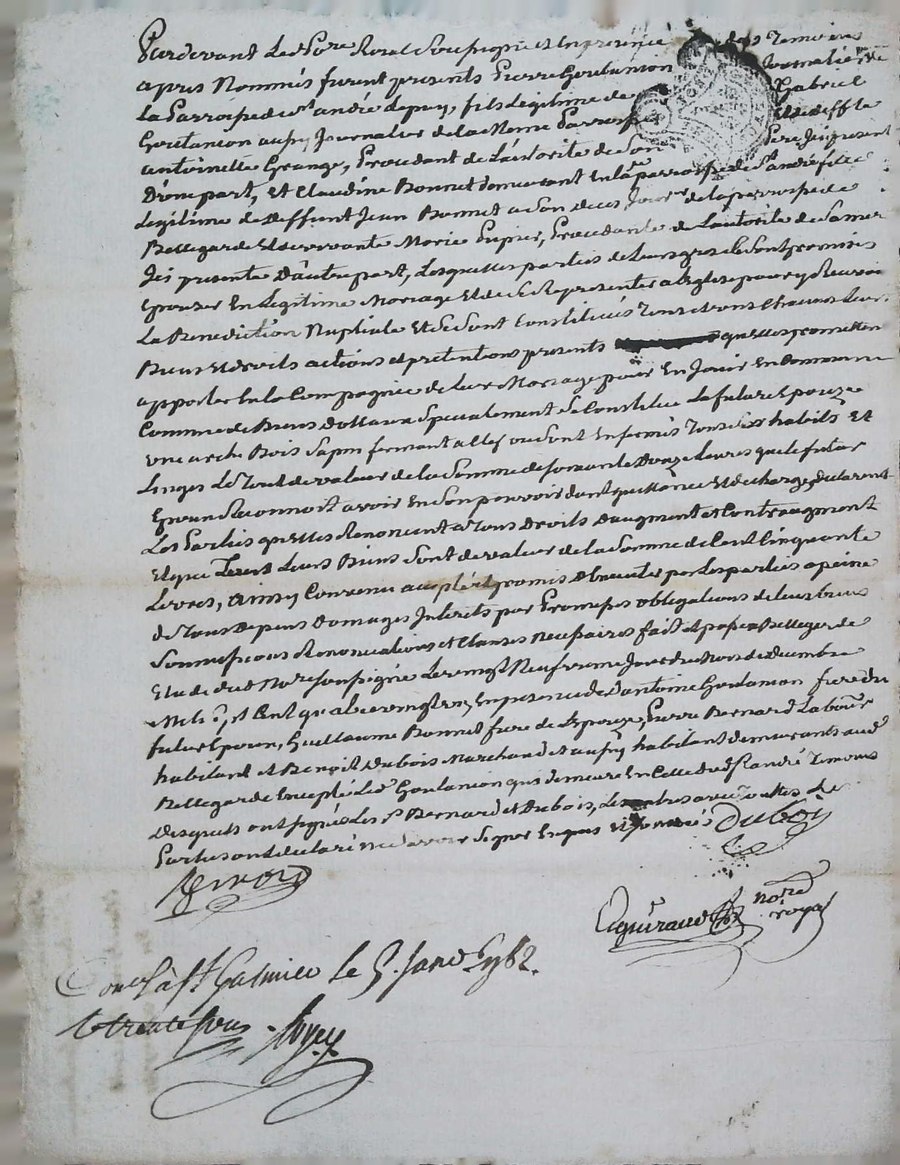 Pardevant Le No.re Roial Soussigné et En presence des Temoins
apres Nommés furent presents Pierre Goutanion Journalier de
La Parroisse de S.t andré Lepuy, fils Legitime de Gabriel
Goutanion aussy Journalier de la Meme Parroisse Et de deffte
antoinette Grange, Procedant de L'autorité de Son Pere Jci present
D'une part, Et Claudine Bonnet demeurant En la ditte parroisse de S.t andré fille
Legitime de Deffunt Jean Bonnet a Son deces Jour.r de la parroisse de
Bellegarde Et de vivante Marie Pupier, Procedante de L'autorité de Sa mere
Jci presente D'autre part, Lesquelles parties de Leurs gres Se Sont promises
Epouser En Legitime Mariage Et de Se Representer a L'eglise pour y Recevoir
La Benediction Nuptiale Et Se Sont Constitués Tous et uns Chacuns Leurs
Biens Et droits actions et pretentions presents quelles promettent
apporter En la Compagnie de Leur Mariage pour En Jouir En Commun
Comme de Biens Dottaux Specialement Se Constitue La future Epouze
une arche Bois Sapin fermant a Clef ou Sont Enfermés Tous Ses habits Et
Linges Le Tout de valeur de la Somme de Soixante Douze Livres que le futur
Epoux Reconnoit avoir En Son pouvoir dont quittance Et decharge, Declarent
Les Parties quelles Renoncent a Tous Droits D'augment et Contraugment
Et que Leurs Biens Sont de valeur de la Somme de Cent Cinquante
Livres, ainsy Convenu accepté et promis Executer par Les parties a peine
de Tous Depens Domages Interets par Promesses obligations de Leurs biens
Soumissions Renonciations et Clauses Necessaires fait et passé a Bellegarde
Etude dud No.re Soussigné Le vingt Neufvieme Jour du Mois de Decembre
Mil Sept Cent quatre vingt un, En presence de antoine Goutanion frere du
futur Epoux, Guillaume Bonnet frere de L'epouze, Pierre Bernard Labour.r
habitant et Benoit Dubois Marchand Et aussy habitant demeurants aud
Bellegarde Excepté Led Goutanion qui demeure En Celle dud S.t andré Temoins
Desquels ont Signé Les S.rs Bernard et Dubois, Les autres avec Toutes Les
Parties ont declaré ne Savoir Signer Enquis et Sommés Dubois
Bernard
not.re
royal
Con.lé à S.t Galmier Le 5. Janv.r 1782.
trente sous